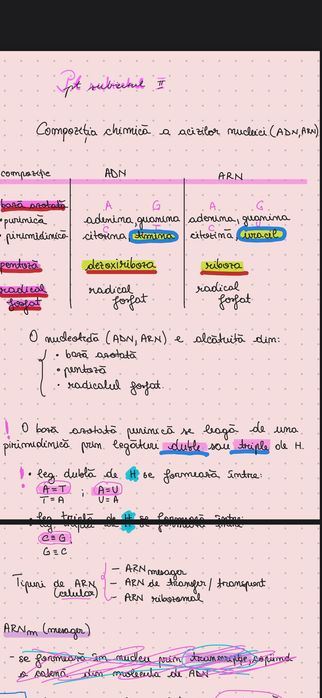 Pt subiectul II
Compoziția chimică a acizilor nucleici (ADN, ARN)
compoziție ADN ARN
bază azotată A G A G
• purinică adenina, guanina adenina, guanina
C T C U
• pirimidinică citozina, timina citozina, uracil
pentoză dezoxiriboza riboza
radical radical radical
fosfat fosfat fosfat
O nucleotidă (ADN, ARN) e alcătuită din:
• bază azotată
• pentoză
• radicalul fosfat.
! O bază azotată purinică se leagă de una
pirimidinică prin legături duble sau triple de H.
! • leg. dublă de H se formează între:
A=T ; A=U
T=A U=A
• leg triplă de H se formează între:
C≡G
G≡C
Tipuri de ARN – ARN mesager
(celular) – ARN de transfer / transport
– ARN ribozomal
ARNm (mesager)
- se formează în nucleu prin transcripție, copiind
o catenă din molecula de ADN